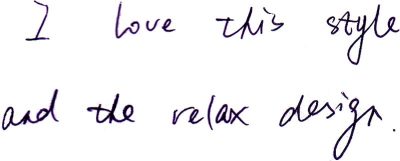 I love this style
and the relax design.